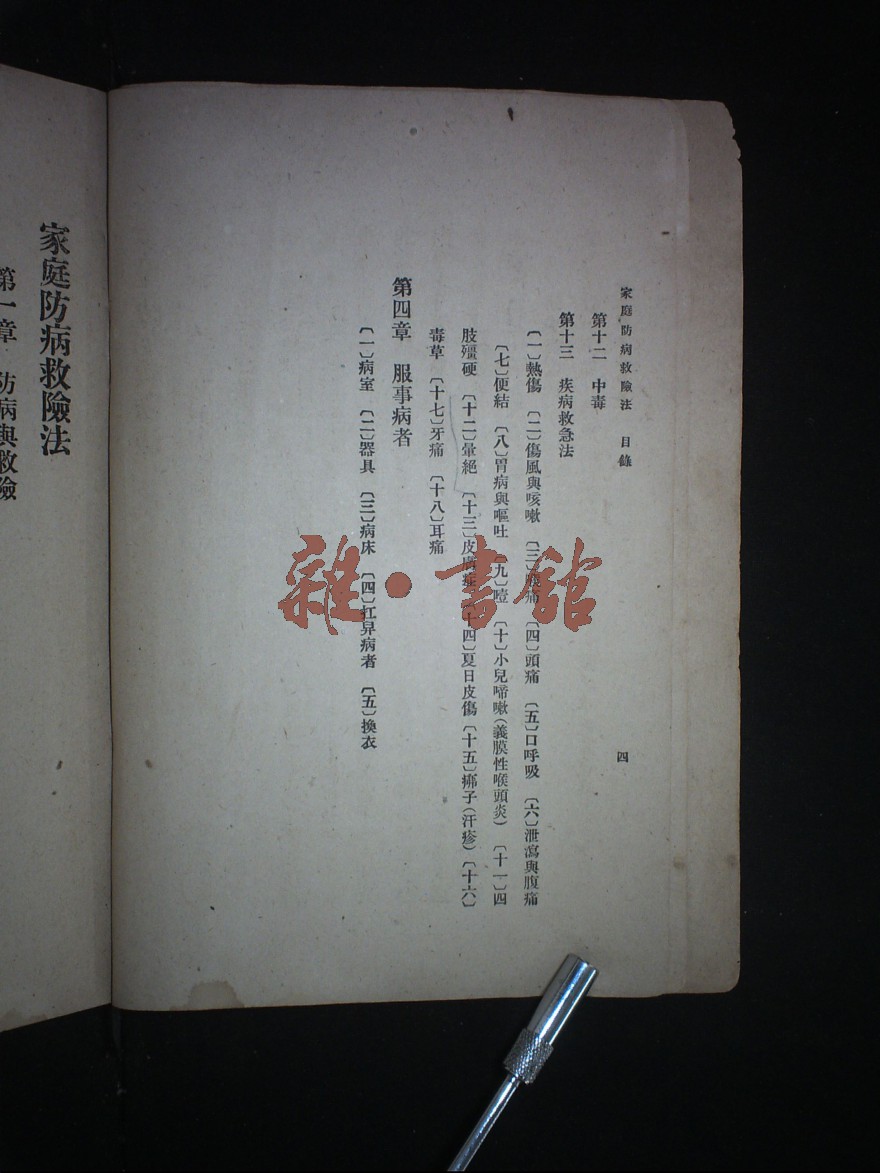 家庭防病救險法 目錄 四
第十二 中毒
第十三 疾病救急法
〔一〕熱傷 〔二〕傷風與咳嗽 〔三〕喉痛 〔四〕頭痛 〔五〕口呼吸 〔六〕泄瀉與腹痛
〔七〕便結 〔八〕胃病與嘔吐 〔九〕噎 〔十〕小兒啼嗽(義膜性喉頭炎) 〔十一〕四
肢殭硬 〔十二〕暈絕 〔十三〕皮膚症 〔十四〕夏日皮傷 〔十五〕痱子(汗疹) 〔十六〕
毒草 〔十七〕牙痛 〔十八〕耳痛
第四章 服事病者
〔一〕病室 〔二〕器具 〔三〕病床 〔四〕扛舁病者 〔五〕換衣
家庭防病救險法
第一章 防病與救險
雜·書館